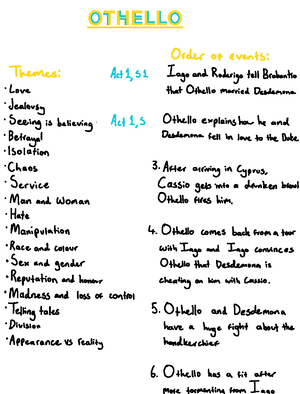 OTHELLO
Themes:
· Love
· Jealousy
· Seeing is believing
· Betrayal
· Isolation
· Chaos
· Service
· Man and Woman
· Hate
· Manipulation
· Race and colour
· Sex and gender
· Reputation and honour
· Madness and loss of control
· Telling tales
· Division
· Appearance vs reality
Order of events:
Act 1, S1
Iago and Roderigo tell Brabantio
that Othello married Desdemona
Act 1, S
Othello explains how he and
Desdemona fell in love to the Duke
3. After arriving in Cyprus,
Cassio gets into a drunken brawl
Othello fires him.
4. Othello comes back from a tour
with Iago and Iago convinces
Othello that Desdemona is
cheating on him with Cassio.
5. Othello and Desdemona
have a huge fight about the
handkerchief
6. Othello has a fit after
more tormenting from Iago